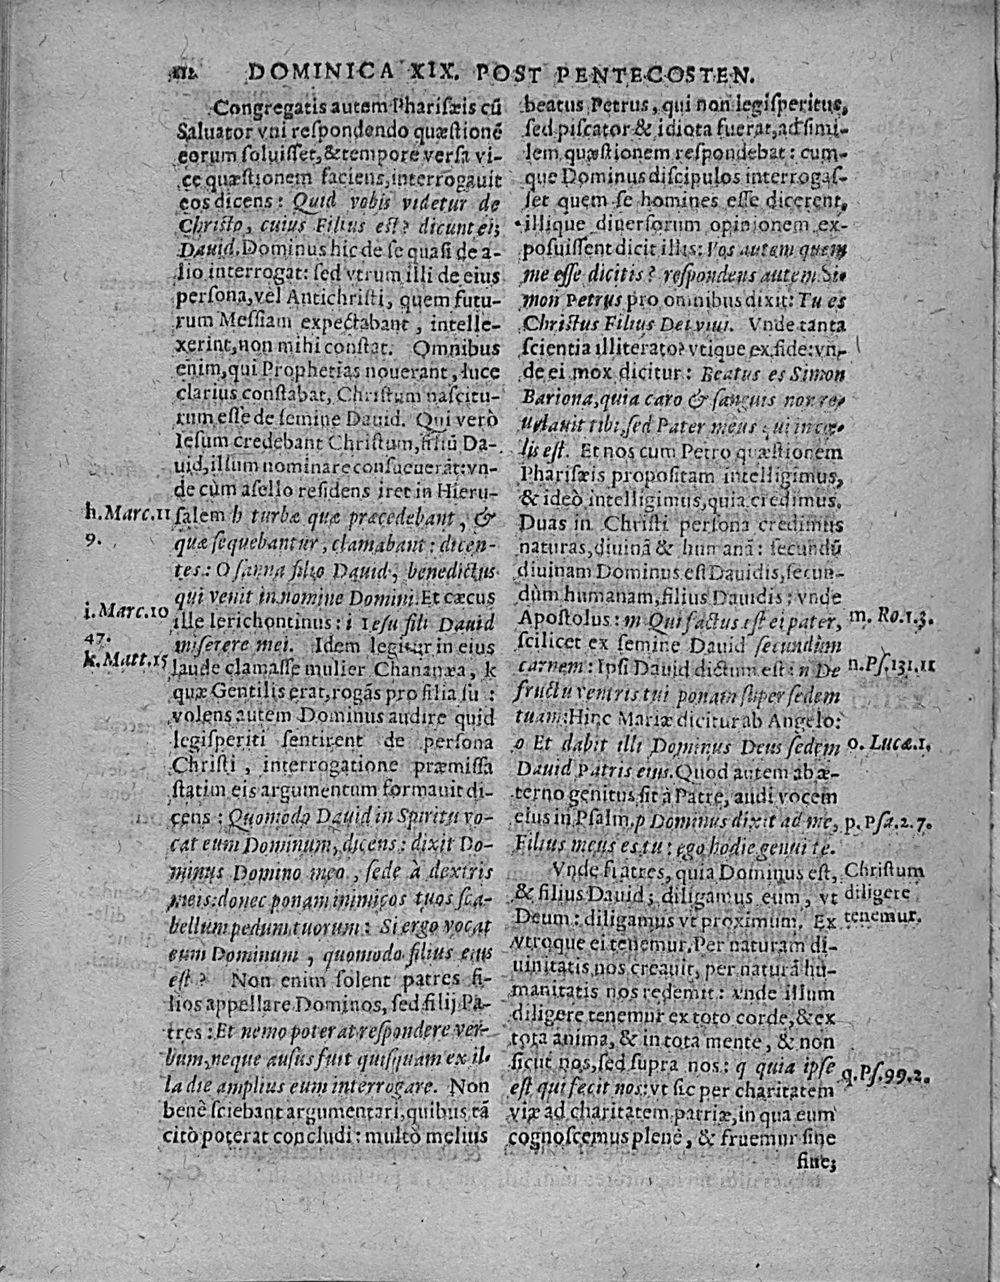 DOMINICA XIX. POST PENTECOSTEN.
Congregatis autem Pharisæis cū
Saluator vni respondendo quæstionē
eorum soluisset, & tempore versa vi-
ce quæstionem faciens, interrogauit
eos dicens: Quid vobis videtur de
Christo, cuius Filius est? dicunt ei;
Dauid. Dominus hic de se quasi de a-
lio interrogat: sed vtrum illi de eius
persona, vel Antichristi, quem futu-
rum Messiam expectabant, intelle-
xerint, non mihi constat. Omnibus
enim, qui Prophetias nouerant, luce
clarius constabat, Christum nascitu-
rum esse de semine Dauid. Qui verò
Iesum credebant Christum, filiū Da-
uid, illum nominare consueuerāt: vn-
de cùm asello residens iret in Hieru-
salem h turbæ quæ præcedebant, &
quæ sequebantur, clamabant: dicen-
tes: Osanna filio Dauid, benedictus
qui venit in nomine Domini. Et cæcus
ille Ierichontinus: i Iesu fili Dauid
miserere mei. Idem legitur in eius
laude clamasse mulier Chananæa, k
quæ Gentilis erat, rogās pro filia su:
volens autem Dominus audire quid
legisperiti sentirent de persona
Christi, interrogatione præmissa
statim eis argumentum formauit di-
cens: Quomodo Dauid in Spiritu vo-
cat eum Dominum, dicens: dixit Do-
minus Domino meo, sede à dextris
meis: donec ponam inimicos tuos sca-
bellum pedum tuorum: Si ergo vocat
eum Dominum, quomodo filius eius
est? Non enim solent patres fi-
lios appellare Dominos, sed filij Pa-
tres: Et nemo poterat respondere ver-
bum, neque ausus fuit quisquam ex il-
la die amplius eum interrogare. Non
benè sciebant argumentari, quibus tā
citò poterat concludi: multò melius
h. Marc. 11
9.
i. Marc. 10
47.
k. Matt. 15
beatus Petrus, qui non legisperitus,
sed piscator & idiota fuerat, ad simi-
lem quæstionem respondebat: cum-
que Dominus discipulos interrogas-
set quem se homines esse dicerent,
illique diuersorum opinionem ex-
posuissent dicit illis: Vos autem quem
me esse dicitis? respondens autem Si-
mon Petrus pro omnibus dixit: Tu es
Christus Filius Dei viui. Vnde tanta
scientia illiterato? vtique ex fide: vn-
de ei mox dicitur: Beatus es Simon
Bariona, quia caro & sanguis non re-
uelauit tibi, sed Pater meus qui in cæ-
lis est. Et nos cum Petro quæstionem
Pharisæis propositam intelligimus,
& ideò intelligimus, quia credimus.
Duas in Christi persona credimus
naturas, diuinā & humanā: secundū
diuinam Dominus est Dauidis, secun-
dùm humanam, filius Dauidis; vnde
Apostolus: m Qui factus est ei pater,
scilicet ex semine Dauid secundùm
carnem: Ipsi Dauid dictum est: n De
fructu ventris tui ponam super sedem
tuam: Hinc Mariæ dicitur ab Angelo:
o Et dabit illi Dominus Deus sedem
Dauid Patris eius. Quod autem ab æ-
terno genitus sit à Patre, audi vocem
eius in Psalm. p Dominus dixit ad me,
Filius meus es tu: ego hodie genui te.
Vnde fratres, quia Dominus est,
& filius Dauid; diligamus eum, vt
Deum: diligamus vt proximum. Ex
vtroque ei tenemur. Per naturam di-
uinitatis nos creauit, per naturā hu-
manitatis nos redemit: vnde illum
diligere tenemur ex toto corde, & ex
tota anima, & in tota mente, & non
sicut nos, sed supra nos: q quia ipse
est qui fecit nos: vt sic per charitatem
viæ ad charitatem patriæ, in qua eum
cognoscemus plenè, & fruemur sine
fine;
m. Ro. 1. 3.
n. Ps. 131. 11
o. Lucæ. 1.
p. Psa. 2. 7.
Christum
diligere
tenemur.
q. Ps. 99. 2.